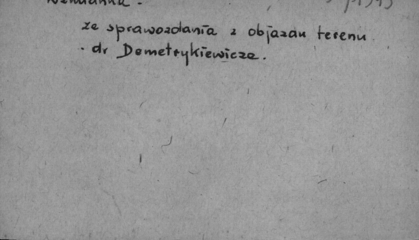 Wzmianka.
ze sprawozdania z objazdu terenu
dr Demetrykiewicza.